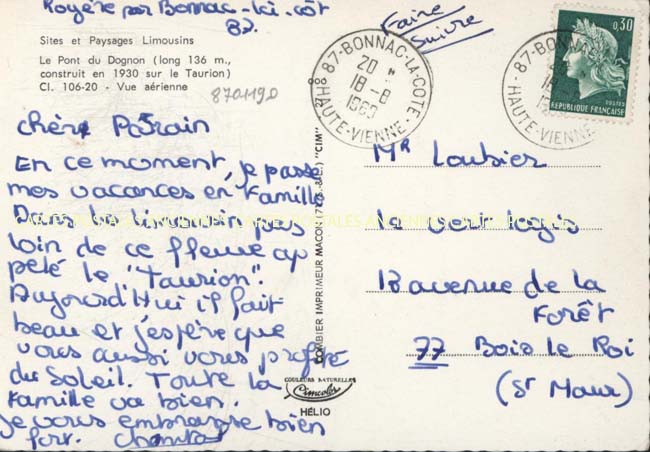 Royère par Bonnac-la-côt
87.
Sites et Paysages Limousins
Le Pont du Dognon (long 136 m.,
construit en 1930 sur le Taurion)
Cl. 106-20 - Vue aérienne
8701190
Faire
Suivre
87-BONNAC-LA-COTE
20 H
18-8
1969
HAUTE-VIENNE
0,30
POSTES
REPUBLIQUE FRANÇAISE
chère Parrain
En ce moment, je passe
mes vacances en famille
Dans le Limousin pas
loin de ce fleuve ap
pelé le "Taurion".
Aujord'Hui il fait
beau et j'espére que
vous aussi vous profite
du Soleil. Toute la
famille va bien.
Je vous embrasse bien
fort. Chantal
CARTES POSTALES ANCIENNES CARTES POSTALES ANCIENNES CARTES POSTALES
COMBIER IMPRIMEUR MACON (71) (S.-&-L.) "CIM"
COULEURS NATURELLES
Cimcolor
HÉLIO
Mr Loubier
le vert logis
13 avenue de la
Forêt
77 Bois le Roi
(St Maur)